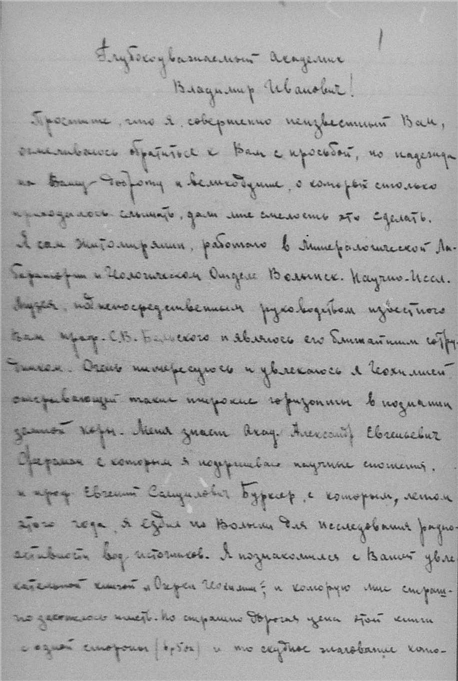 1
Глубокоуважаемый академик
Владимир Иванович!
Простите, что я, совершенно неизвестный Вам,
осмеливаюсь обратиться к Вам с просьбой, но надежда
на Вашу доброту и великодушие, о которых столько
приходилось слышать, дали мне смелость это сделать.
Я сам житомирянин, работаю в Минералогической Ла-
боратории и Геологическом Отделе Волынск. Научно-Иссл.
Музея, под непосредственным руководством известного
Вам проф. С.В. Бельского и являюсь его ближайшим сотру-
дником. Очень интересуюсь и увлекаюсь я Геохимией
открывающей такие широкие горизонты в познании
земной коры. Меня знает Акад. Александр Евгеньевич
Ферсман с которым я поддерживаю научные сношения,
и проф. Евгений Самуилович Бурксер, с которым, летом
этого года, я ездил по Волыни для исследования радио-
активности вод. источников. Я познакомился с Вашей увле-
кательной книгой "Очерки Геохимии", и которую мне страш-
но захотелось иметь. Но страшно дорогая цена этой книги
с одной стороны и то скудное жалование кото-